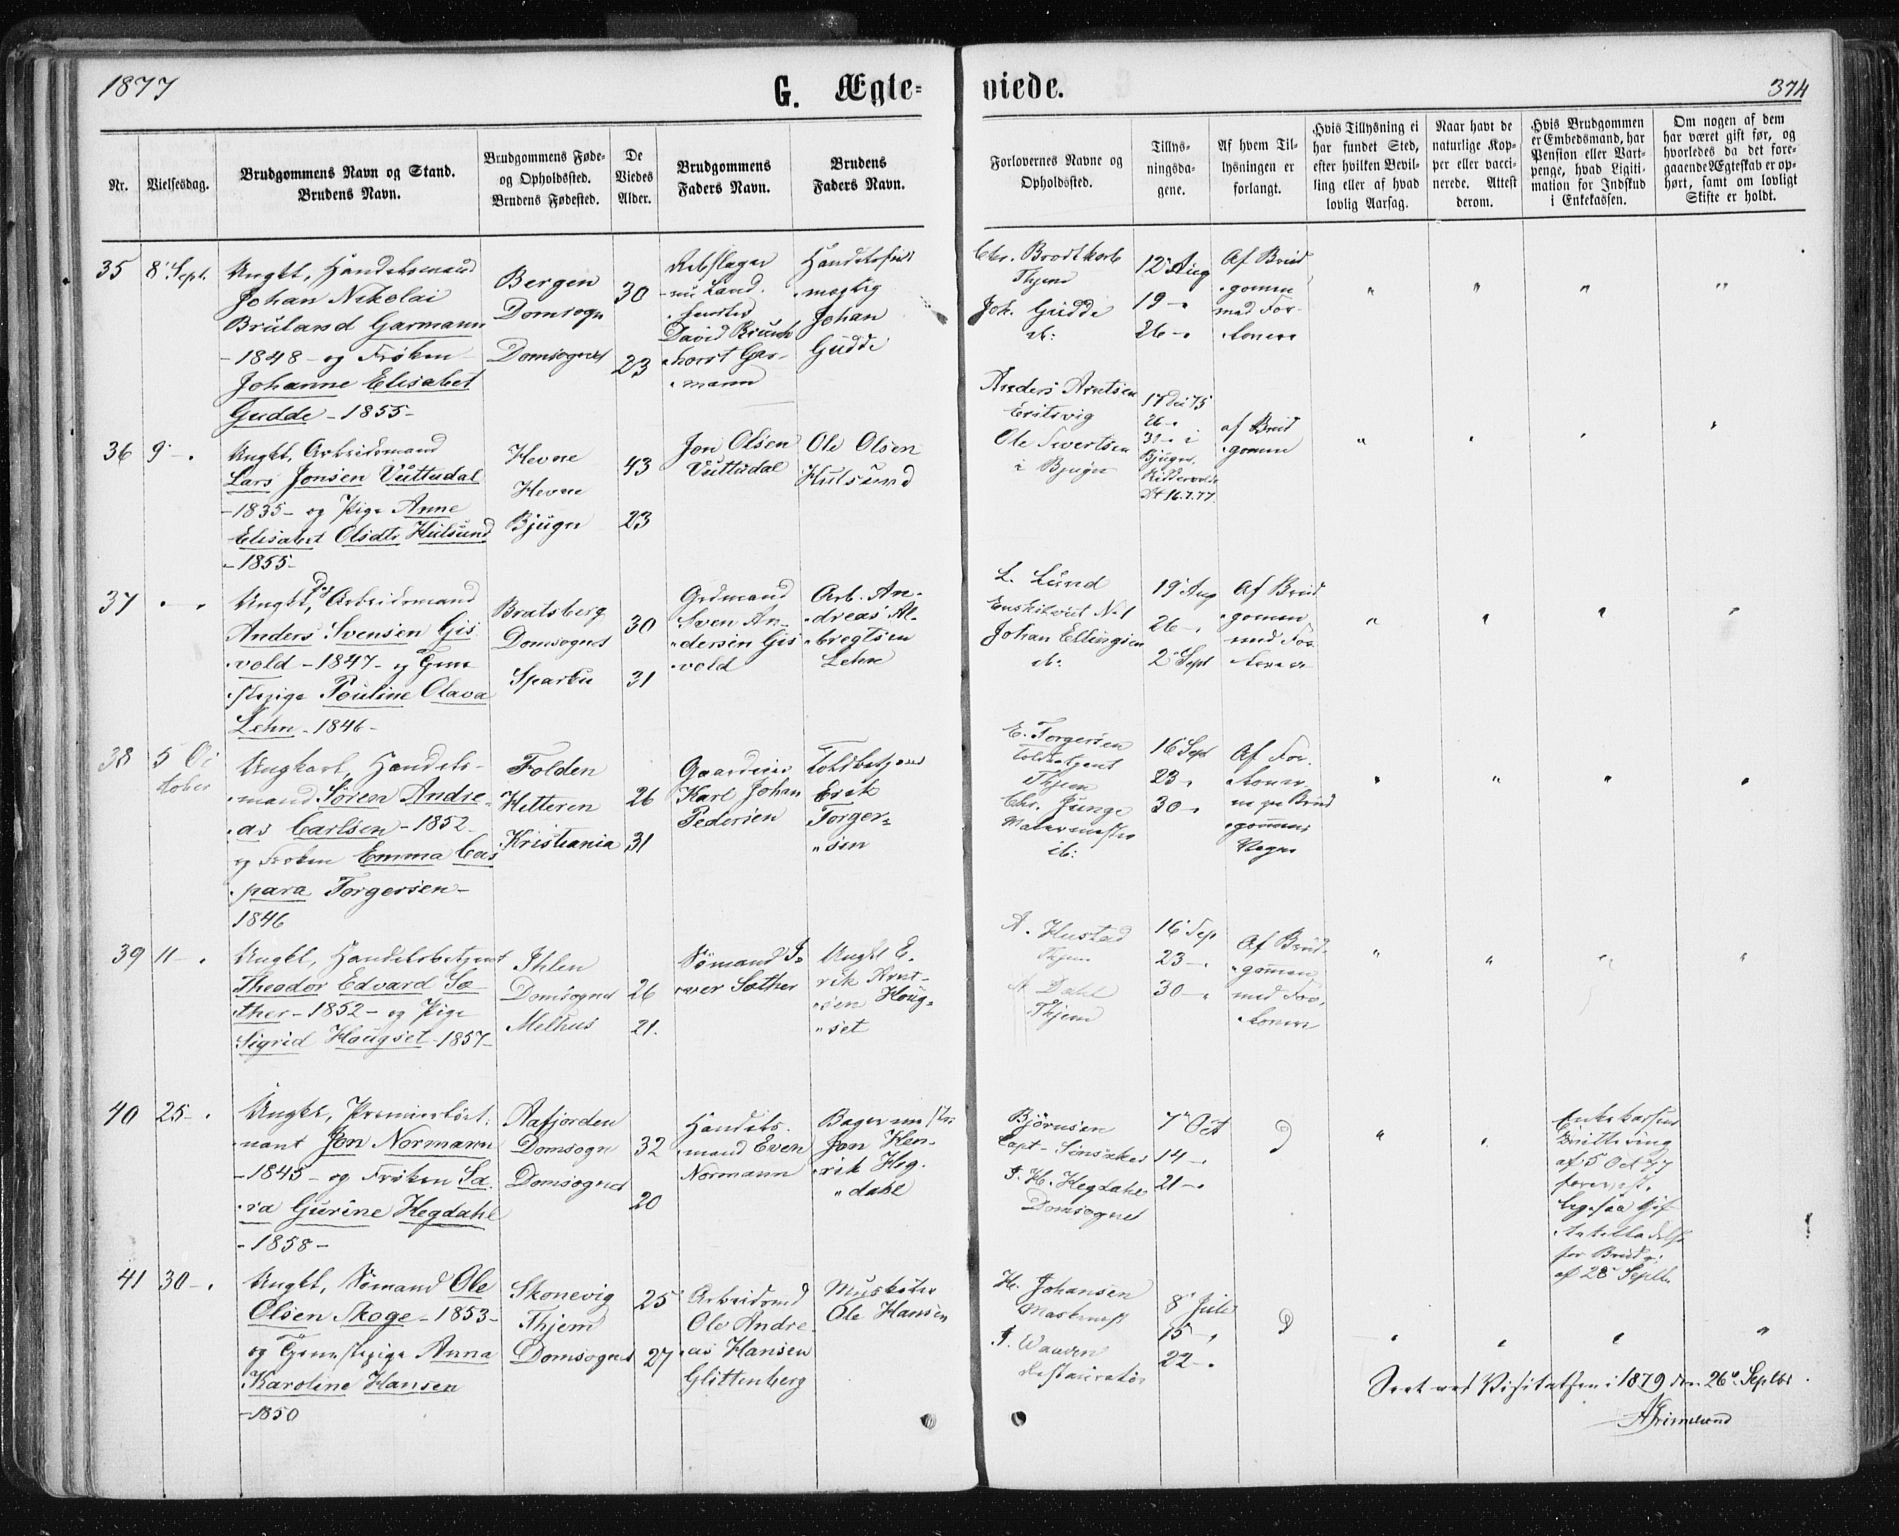 1877
G. Ægte=
viede.
374
Nr.
Vielsesdag.
Brudgommens Navn og Stand.
Brudens Navn.
Brudgommens Føde-
og Opholdssted.
Brudens Fødested.
De
Viedes
Alder.
Brudgommens
Faders Navn.
Brudens
Faders Navn.
Forlovernes Navne og
Opholdssted.
Tillys-
ningsda-
gene.
Af hvem Til-
lysningen er
forlangt.
Hvis Tillysning ei
har fundet Sted,
efter hvilken Bevil-
ling eller af hvad
lovlig Aarsag.
Naar havt de
naturlige Kop-
per eller vacci-
nerede. Attest
derom.
Hvis Brudgommen
er Embedsmand, har
Pension eller Vart-
penge, hvad Ligiti-
mation for Indskud
i Enkekassen.
Om nogen af dem
har været gift før, og
hvorledes da det fore-
gaaende Ægteskab er op-
hørt, samt om lovligt
Skifte er holdt.
35
8' Sept.
Ungkl, Handelsmand
Johan Nikolai
Bruland Garmann
- 1848 - og Frøken
Johanne Elisabet
Gudde - 1855 -
Bergen
Domsogn
Domsognet
30
23
Rebslager
David Brunch
horst Gar-
mann
mægtig
Johan
Gudde
Chr. Brodtkorb
Thjem
Joh. Gudde
ib:
12' Aug
19 -
26 -
Af Brud
gommen
med For-
lovere
36
9 -
Ungkl, Arbeidsmand
Lars Jonsen Vuttudal
- 1835 - og Pige Anne
Elisabet Olsdtr Hulsund
- 1855 -
Hevne
Hevne
Bjugn
43
23
Jon Olsen
Vuttudal
Ole Olsen
Hulsund
Anders Arntsen
Ole Sivertsen
i Bjugn
17 Dei 75
26 -
31 - i
Bjugn,
16.7.77.
af Brud
gommen
37
Ungkl, Arbeidsmand
Anders Svensen Gis
vold - 1847 - og Tjene
stepige Pouline Olava
Lehn - 1846 -
Bratsberg
Domsognet
Sparbu
30
31
Sven An-
dersen Gis
vold
Arb. An-
dreas Al-
bregtsen
Lehn
L. Lund
Enskilveit No 1
Johan Ellingsen
ib:
19' Aug
26 -
2' Sept
Af Brud
gommen
med For
lovere
38
5 Oc
tober
Ungkarl, Handels-
mand Søren Andre-
as Carlsen - 1852 -
og Frøken Emma Cas
para Torgersen -
1846
Folden
Hitteren
Kristiania
26
31
Gaardeier
Karl Johan
Pedersen
Toldbetjent
Erik
Torger-
sen
E. Torgersen
Toldbetjent
Thjem
Chr. Junge
Malermester
ib:
16' Sept
23 -
30 -
Af For-
lover
ne paa Brud
gommens
Vegne
39
11 -
Ungkl, Handelsbetjent
Theodor Edvard Sæ
ther - 1852 - og Pige
Sigrid Hougset - 1857 -
Ihlen
Domsognet
Melhus
26
21.
Sømand I-
ver Sæther
Ungkl E-
rik Arnt-
sen Houg-
set
A. Hustad
Thjem
A. Dahl
Thjem
16' Sep
23 -
30 -
Af Brud-
gommen
med For-
lovere
40
25 -
Ungkl, Premierløit-
nant Jon Normann
- 1845 - og Frøken Sa-
ra Gurine Hegdahl
- 1858 -
Aafjorden
Domsogn
Domsognet
32
20
Handels-
mand Even
Normann
Bagermester
Jon Hen-
rik Heg-
dahl
Bjørnsen
Capt -
J. H. Hegdahl
Domsognet
7' Oct
14 -
21 -
D
Enkekassens
Qvittering
af 5 Oct 77
forevist.
Ligesaa
for Brudg.
af 28' Septb.
41
30 -
Ungkl, Sømand Ole
Olsen Skoge - 1853 -
og Tjenestepige Anna
Karoline Hansen
- 1850
Skonevig
Thjem
Domsognet
25
27
Arbeidsmd
Ole Andre-
as Hansen
Glittenberg
Musketer
Ole Hansen
H. Johansen
Maskinist
J. Waaven
Restauratør
8' Juli
15 -
22 -
D
Seet ved Visitatsen i 1879 den 26' Septbr.
AGrimelund